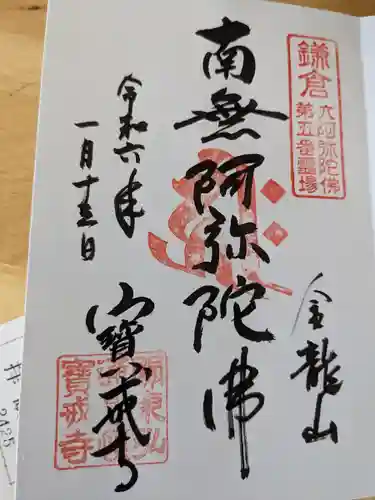 鎌倉
六阿弥陀佛
第五番靈場
金龍山
南無阿弥陀佛
寶戒寺
令和六年
一月十三日
寶戒寺
拝
2425